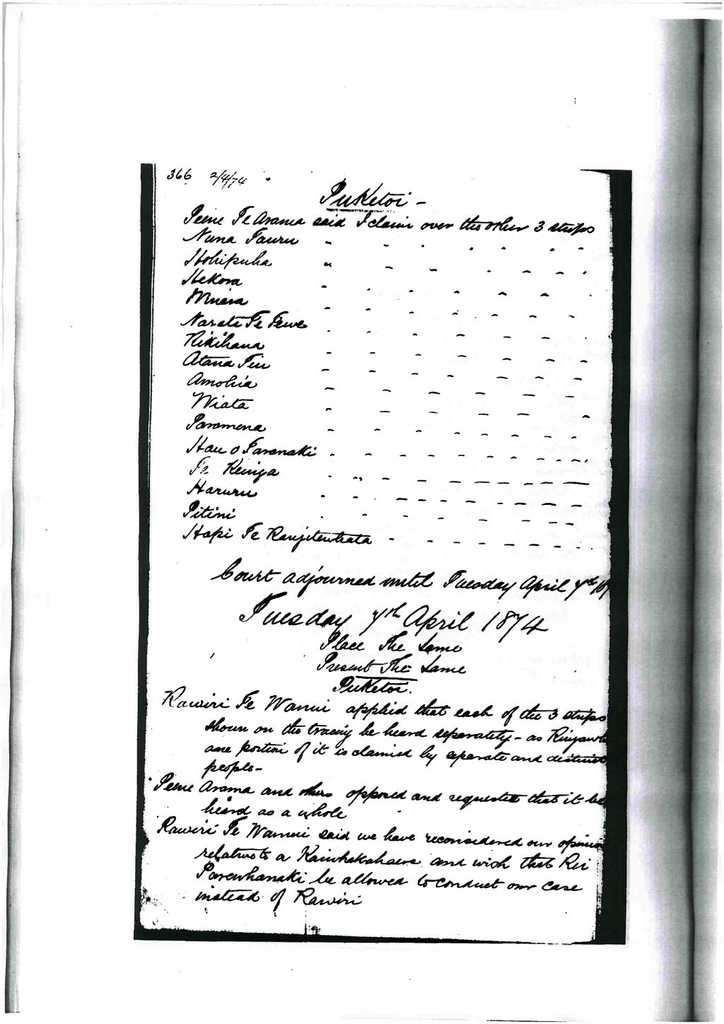 366 2/4/74
Puketoi -
Peene Te Arama said I claim over the other 3 strips
Nuna Tauru " " " " "
Hohipuha " " " " "
Hekora " - - - - -
- - - - - -
Narata Te Rewe - - - - - -
Rikihana - - - - - -
Atana Tiu - - - - - -
Amohia - - - - - -
Wiata - - - - - -
Paramena - - - - - -
Hau o Taranaki - - - - - -
Te Keinga - - - - - -
Haruru - - - - - -
Pitini - - - - - -
Hapi Te Rangitewhata - - - - - -
Court adjourned until Tuesday April 7th
Tuesday 7th April 1874
Place The Same
Present The Same
Puketoi.
Rawiri Te Wanui applied that each of the 3 strips
shown on the tracing be heard separately - as
one portion of it is claimed by separate and distinct
people -
Peene Arama and others opposed and requested that it be
heard as a whole
Rawiri Te Wanui said we have reconsidered our opinion
relative to a Kaiwhakahaere and wish that
Parewhanaki be allowed to conduct our case
instead of Rawiri